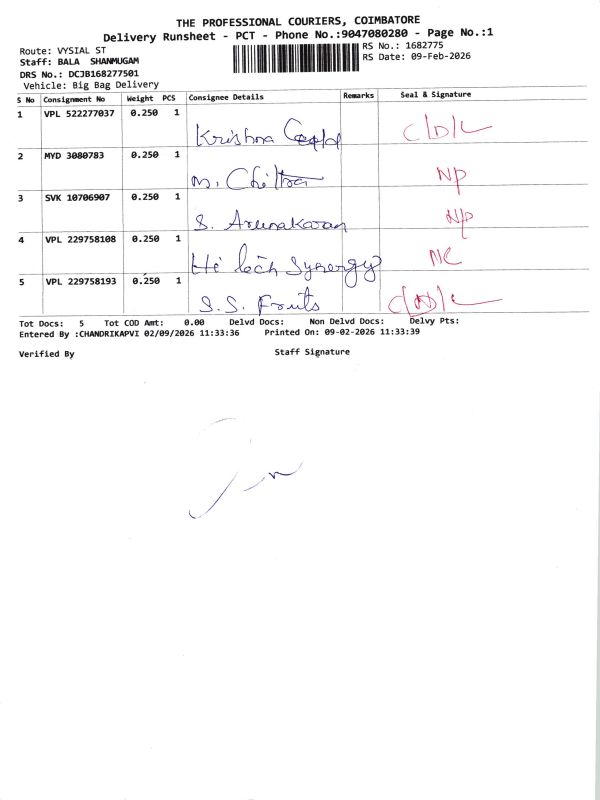 THE PROFESSIONAL COURIERS, COIMBATORE
Delivery Runsheet - PCT - Phone No.:9047080280 - Page No.:1
Route: VYSIAL ST
RS No.: 1682775
Staff: BALA SHANMUGAM
RS Date: 09-Feb-2026
DRS No.: DCJB168277501
Vehicle: Big Bag Delivery
S No Consignment No Weight PCS Consignee Details Remarks Seal & Signature
1 VPL 522277037 0.250 1 Krishna C/D/L
2 MYD 3080783 0.250 1 M. Chitra NP
3 SVK 10706907 0.250 1 S. Arunakaran NP
4 VPL 229758108 0.250 1 Hi tech Synergy NC
5 VPL 229758193 0.250 1 S.S. Fruits
Tot Docs: 5 Tot COD Amt: 0.00 Delvd Docs: Non Delvd Docs: Delvy Pts:
Entered By :CHANDRIKAPVI 02/09/2026 11:33:36 Printed On: 09-02-2026 11:33:39
Verified By Staff Signature